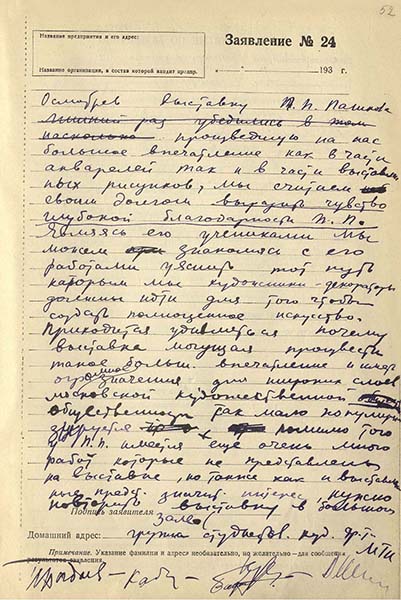 52
Название предприятия и его адрес:
Заявление № 24
Название организации, в состав которой входит предпр.
" " 193 г.
Осмотрев выставку П. П. Пашкова
лишний раз убедились в том
насколько произведшую на нас
большое впечатление как в части
акварелей так и в части выставлен
ных рисунков, мы считаем
своим долгом выразить чувство
глубокой благодарности П. П.
Являясь его учениками мы
можем знакомясь с его
работами уяснить тот путь
которым мы художники-декораторы
должны идти для того чтобы
создать полноценное искусство.
Приходится удивляться почему
выставка могущая произвести
такое больш. впечатление и имеет
огромное значение для широких слоев
московской художественной
общественности так мало популяри
зируется помимо того
у П. П. имеется еще очень много
работ которые не представлены
на выставке, но также как и выставлен
ные предст. значит. интерес, нужно
повторить выставку в большом
зале
Подпись заявителя
Домашний адрес: группа студентов. худ. ф-т-
МТИ
Примечание. Указание фамилии и адреса необязательно, но желательно — для сообщения
результатов заявления.